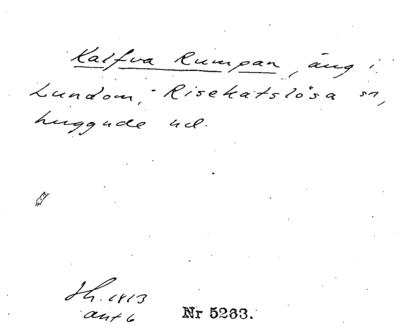 Kalfva Rumpan, äng i
Lundom, Risekatslösa sn,
huggude ud.
Jh. 1813
ant 6
Nr 5263.